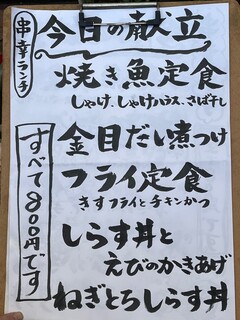 串幸ランチ
今日の献立
焼き魚定食
しゃけ、しゃけハラス、さば干し
金目だい煮つけ
フライ定食
きすフライとチキンかつ
しらす丼と
えびのかきあげ
ねぎとろしらす丼
すべて800円です